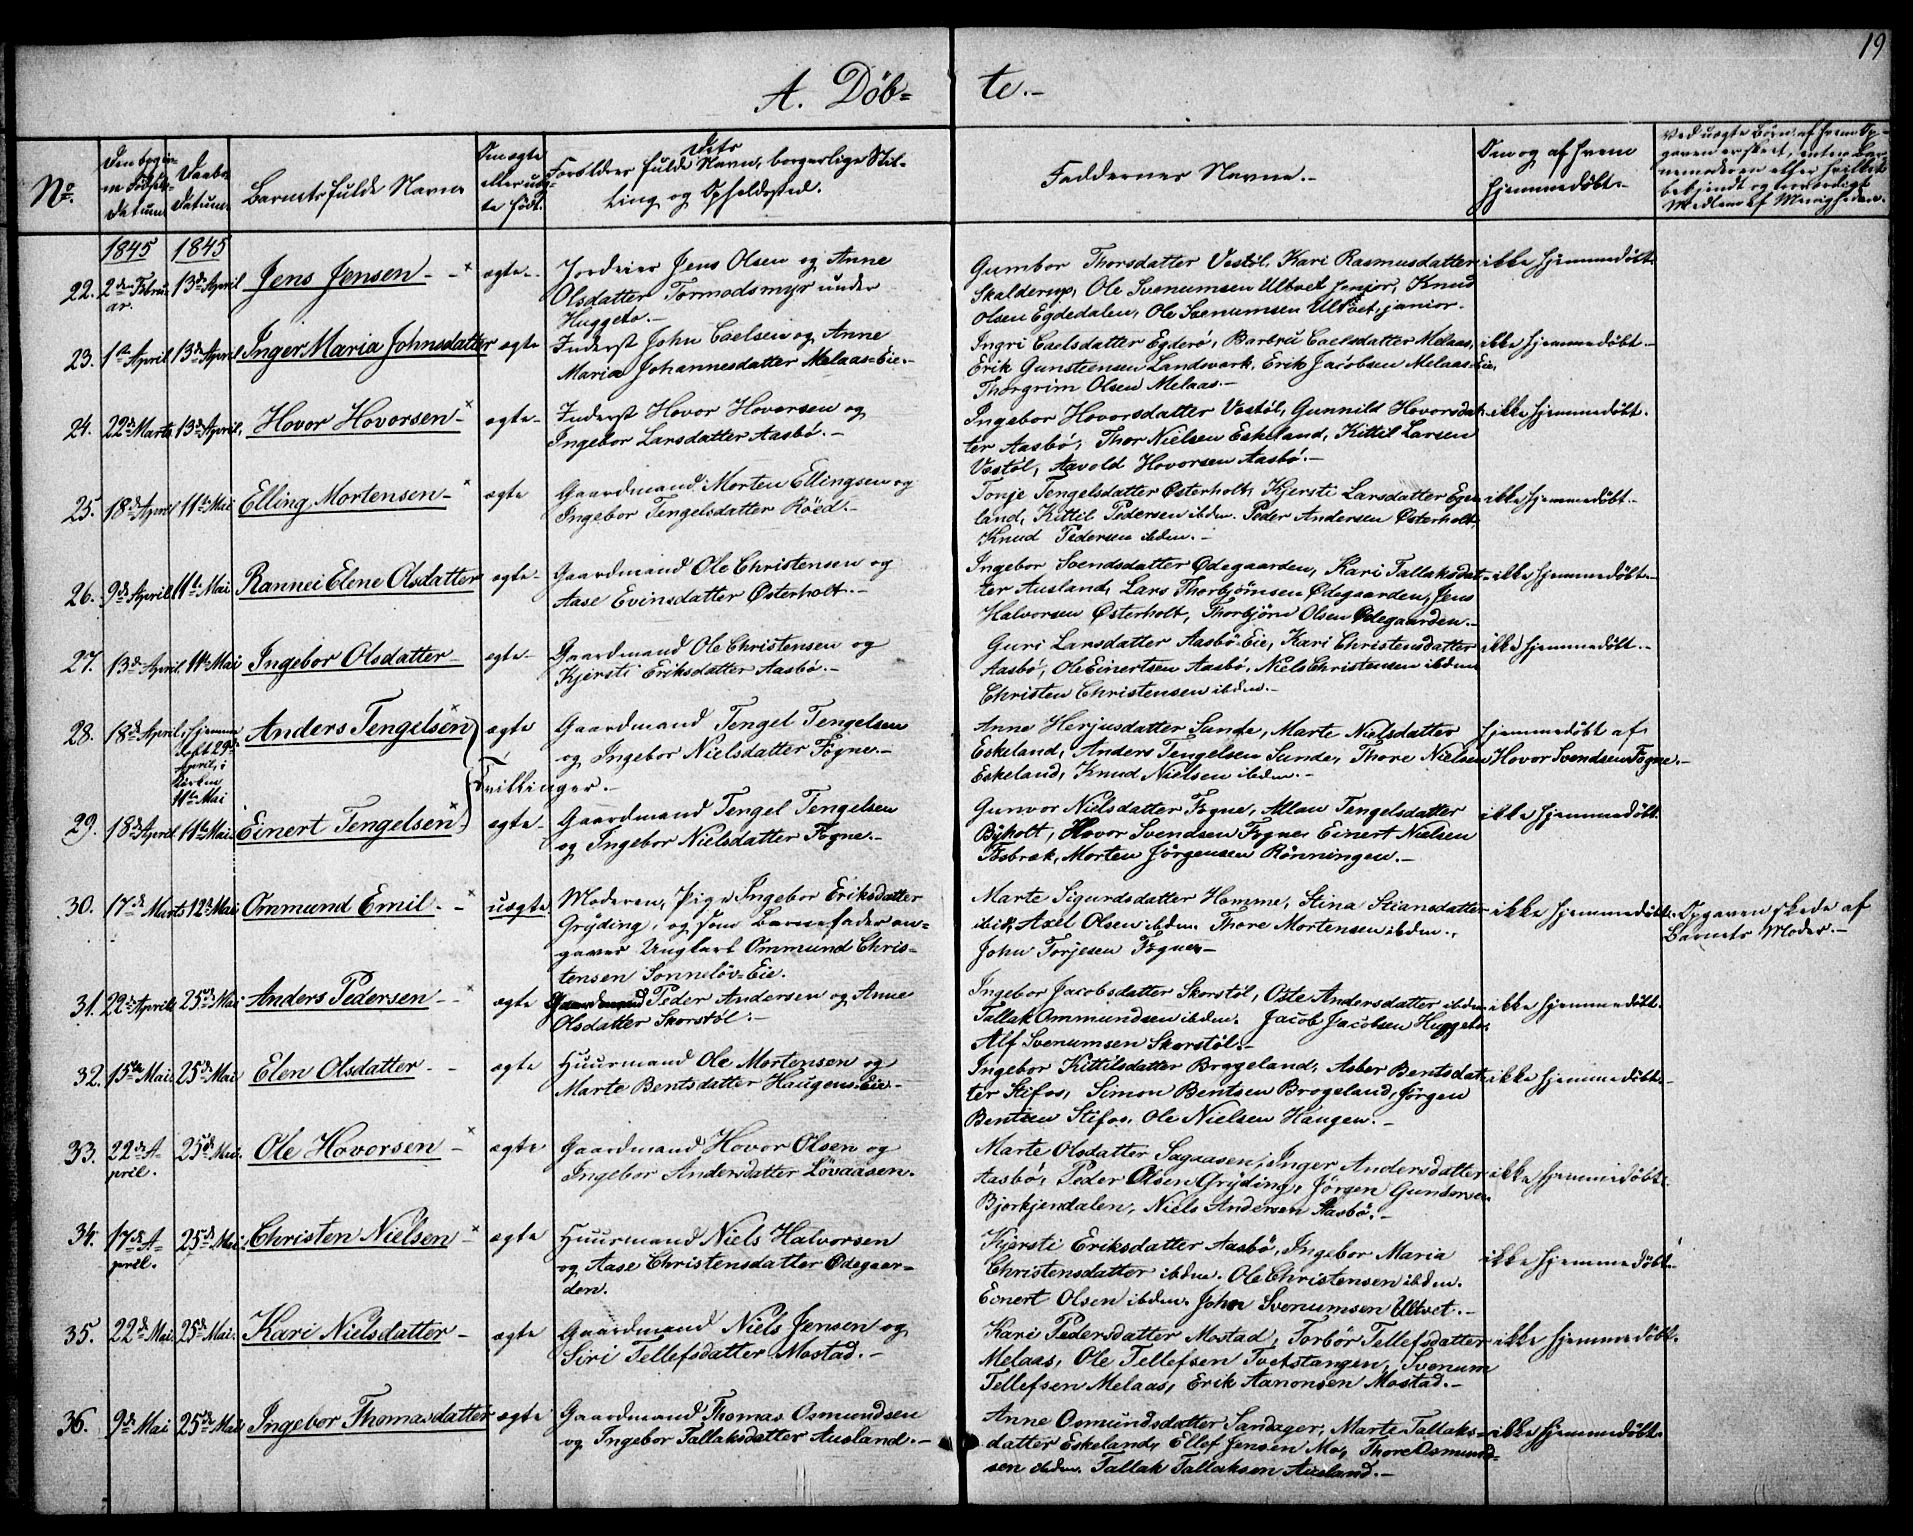 19
A. Döb-
te.-
No.
Den begiv-
ne Fødsels-
Datum
Daabs-
Datum.
Barnets fulde Navn
Om ægte
eller uæg-
te født.
Dets
Forældres fulde Navn, borgerlige Stil-
ling og Opholdssted.
Faddernes Navne.-
Om og af hvem
hjemmedöbt.-
Ved uægte Börn, af hvem Op-
gaven er skeet, enten Bar-
nemoderen eller hvilket
bekjendt og troværdigt
Medlem af Menigheden.
1845 1845
22. 2den Febru-
ar. 13de April Jens Jensen - ægte- Jordeier Jens Olsen og Anne
Olsdatter Tormodsmyr under
Huggeto.-
Gumbor Thorsdatter Vestöl, Kari Rasmusdatter
Skalderup, Ole Svenumsen Ultvet senjor, Knud
Olsen Egdedalen, Ole Svenumsen Ultvet, junior.
ikke hjemmedöbt.
23. 1ste April 13de April Inger Maria Johnsdatter ægte Inderst John Caelsen og Anne
Maria Johannesdatter Melaas-Eie.-
Ingri Caelsdatter Egderö, Barbru Caelsdatter Melaas,
Erik Gunsteensen Landsverk, Erik Jacobsen Melaas-Eie,
Thorgrim Olsen Melaas.-
ikke hjemmedöbt.-
24. 22de Marts 13de April. Hovor Hovorsen - ægte- Inderst Hovor Hovorsen og
Ingebor Larsdatter Aasbö.-
Ingebor Hovorsdatter Vestöl, Gunnild Hovorsdat-
ter Aasbö, Thor Nielsen Eskeland, Kittil Larsen
Vestöl, Aavold Hovorsen Aasbö.-
ikke hjemmedöbt.
25. 18de April 11te Mai Elling Mortensen - ægte Gaardmand Morten Ellingsen og
Ingebor Tengelsdatter Röed.-
Tonje Tengelsdatter Østerholt, Kjersti Larsdatter Ege-
land, Kittil Pedersen ibdm. Peder Andersen Østerholt
Knud Pedersen ibdm.-
ikke hjemmedöbt.-
26. 9de April 11te Mai Rannei Elene Olsdatter ægte- Gaardmand Ole Christensen og
Aase Evinsdatter Østerholt.-
Ingebor Svendsdatter Ødegaarden, Kari Tallaksdat-
ter Ausland, Lars Thorbjörnsen Ødegaarden, Jens
Halvorsen Østerholt, Thorbjörn Olsen Ødegaarden.-
ikke hjemmedöbt.-
27. 13de April 11te Mai Ingebor Olsdatter - ægte- Gaardmand Ole Christensen og
Kjersti Eriksdatter Aasbö.-
Guri Larsdatter Aasbö-Eie, Kari Christensdatter
Aasbö, Ole Einertsen Aasbö, Niels Christensen ibdm
Christen Christensen ibdm.-
ikke hjemmedöbt.-
28. 18de April Hjemme-
döbt 29de
April, i
Kirken
11te Mai Anders Tengelsen ægte Gaardmand Tengel Tengelsen
og Ingebor Nielsdatter Fogne.-
Tvillinger.
Anne Herjusdatter Sunde, Marte Nielsdatter
Eskeland, Anders Tengelsen Sunde, Thore Nielsen
Eskeland, Knud Nielsen ibdm.-
Hjemmedöbt af
Hovor Svendsen Fogne.-
29. 18de April 11te Mai. Einert Tengelsen ægte- Gaardmand Tengel Tengelsen
og Ingebor Nielsdatter Fogne.-
Gunvor Nielsdatter Fogne, Allau Tengelsdatter
Byholt, Hovor Svendsen Fogne, Einert Nielsen
Fosbræk, Morten Jörgensen Rönningen.-
ikke hjemmedöbt.
30. 17de Marts 12te Mai Ommund Emil - uægte Moderen, Pige Ingebor Eriksdatter
Gryding, og som Barnefader an-
gaves Ungkarl Ommund Chris-
tensen Sonnelöv-Eie.
Marte Sigurdsdatter Homme, Stina Stiansdatter
ibid, Axel Olsen ibdm. Thore Mortensen ibdm.,
John Torjesen Fogne,-
ikke hjemmedöbt. Opgaven skede af
Barnets Moder.-
31. 22de April 25de Mai Anders Pedersen - ægte Gaardmand Peder Andersen og Anne
Olsdatter Skorstöl.-
Ingebor Jacobsdatter Skorstöl, Oste Andersdatter ibdm
Tallak Ommundsen ibdm. Jacob Jacobsen Huggeto,
Alf Svenumsen Skorstöl.-
ikke hjemmedöbt.
32. 15de Mai 25de Mai Elen Olsdatter - ægte Huurmand Ole Mortensen og
Marte Bentsdatter Haugens Eie-
Ingebor Kittilsdatter Brogeland, Asber Bentsdat-
ter Stifos, Simon Bentsen Brogeland, Jörgen
Bentsen Stifos, Ole Nielsen Haugen.-
ikke hjemmedöbt.-
33. 22de A-
pril. 25de Mai. Ole Hovorsen - ægte Gaardmand Hovor Olsen og
Ingebor Andersdatter Lövaasen.
Marte Olsdatter Sagaasen, Inger Andersdatter
Aasbö, Peder Olsen Gryding, Jörgen Gundersen
Bjorkjendalen, Niels Andersen Aasbö.-
ikke hjemmedöbt.
34. 17de A-
pril. 25de Mai. Christen Nielsen - ægte Huurmand Niels Halvorsen
og Aase Christensdatter Ødegaar-
den.
Kjersti Eriksdatter Aasbö, Ingebor Maria
Christensdatter ibdm. Ole Christensen ibdm.
Einert Olsen ibdm. John Svenumsen Ultvet.-
ikke hjemmedöbt.
35. 22de Mai 25de Mai. Kari Nielsdatter - ægte Gaardmand Niels Jensen og
Siri Tellefsdatter Mostad.-
Kari Pedersdatter Mostad, Torbör Tellefsdatter
Melaas, Ole Tellefsen Tvetstangen, Svenum
Tellefsen Melaas, Erik Aanonsen Mostad.-
ikke hjemmedöbt.
36. 9de Mai 25de Mai Ingebor Thomasdatter ægte Gaardmand Thomas Osmundsen
og Ingebor Tallaksdatter Ausland.-
Anne Osmundsdatter Sandager, Marte Tallaks-
datter Eskeland, Ellef Jensen Mo, Thore Osmund-
sen ibdm. Tallak Tallaksen Ausland.-
ikke hjemmedöbt.